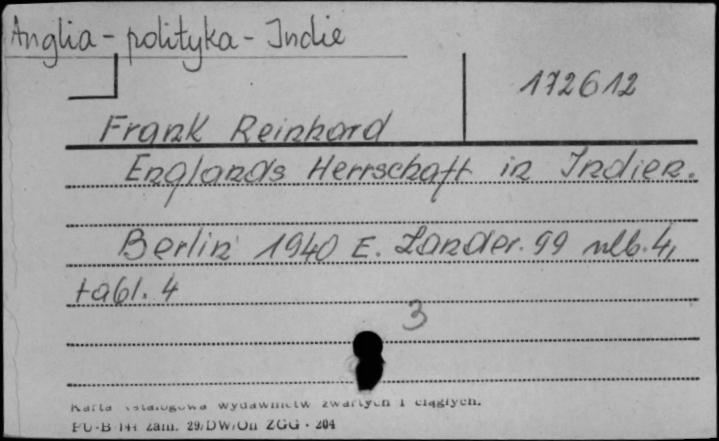 Anglia - polityka - Indie
172612
Frank Reinhard
Englands Herrschaft in Indien.
Berlin 1940 E. Lander. 99 nlb. 4,
tabl. 4
3
Karta katalogowa wydawnictw zwartych i ciągłych.
PU-B 144 zam. 29/DW/On ZGG - 204